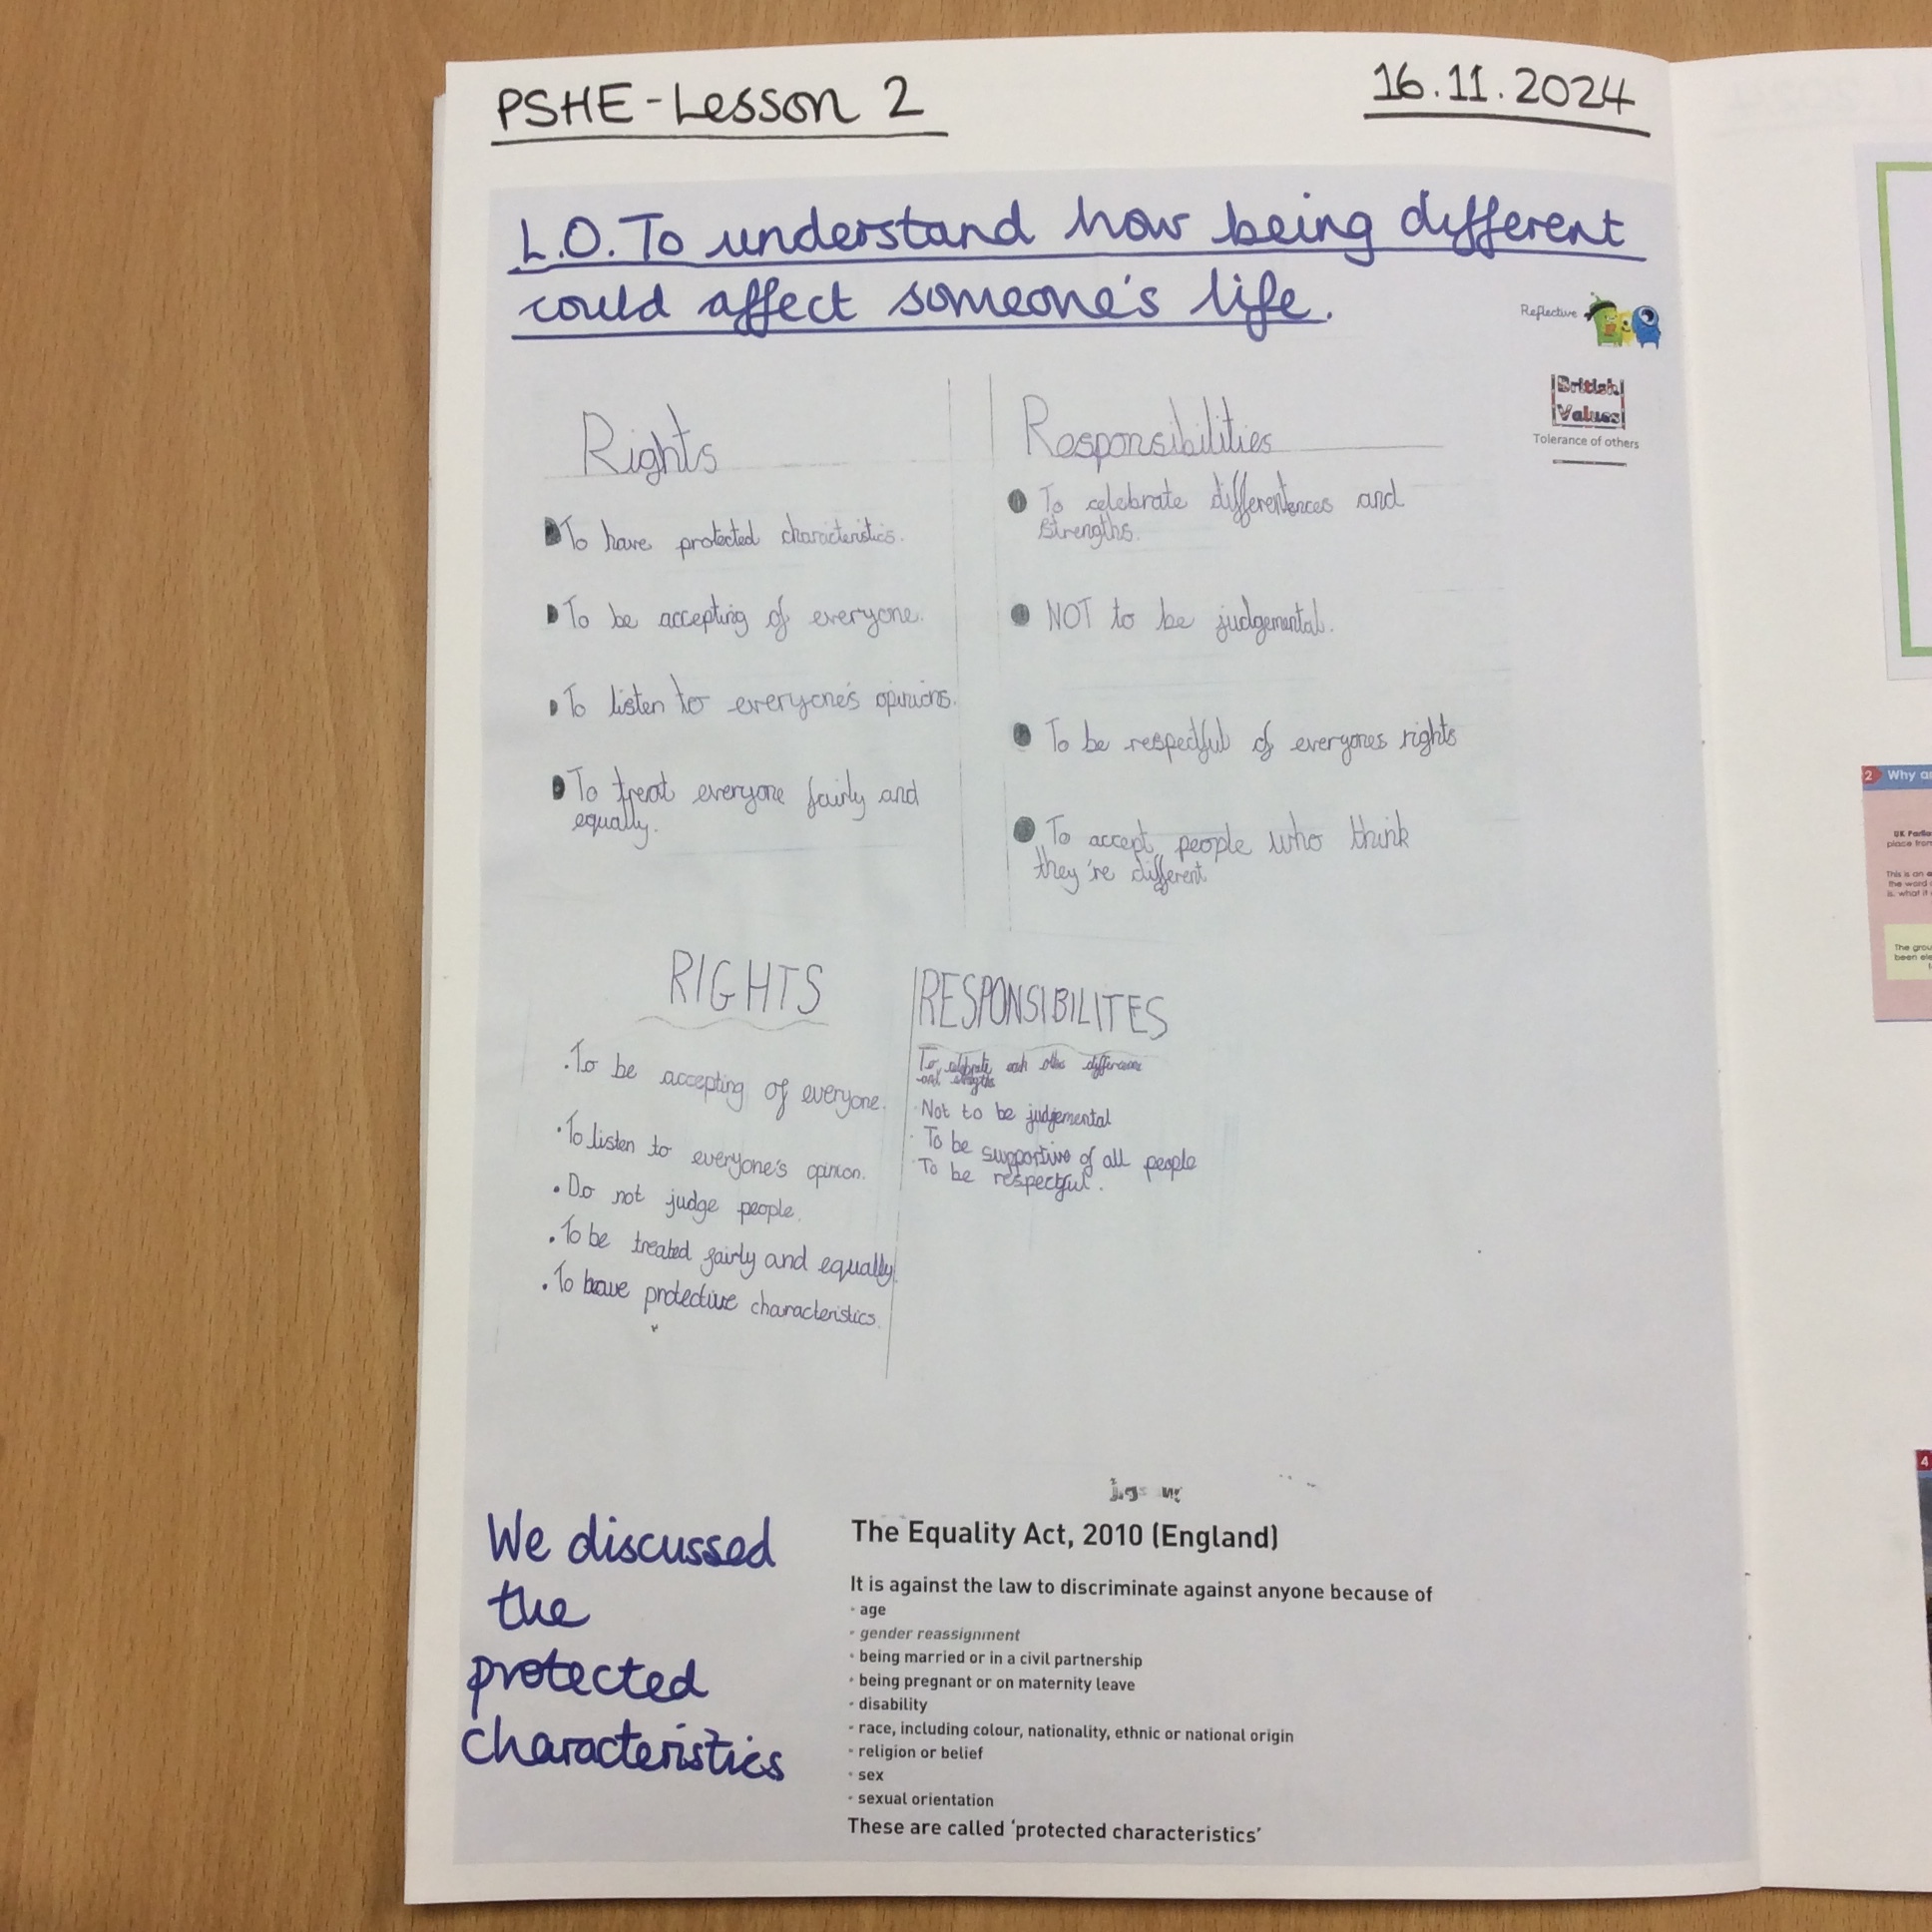 PSHE-Lesson 2
16.11.2024
L.O. To understand how being different
could affect someone's life.
Reflective
British
Values
Tolerance of others
Rights
To have protected characteristics.
To be accepting of everyone.
To listen to everyone's opinions.
To treat everyone fairly and
equally.
Responsibilities
To celebrate differentences and
strengths.
NOT to be judgemental.
To be respectful of everyones rights
To accept people who think
they're different
RIGHTS
· To be accepting of everyone.
· To listen to everyone's opinion.
· Do not judge people.
· To be treated fairly and equally.
· To have protective characteristics.
RESPONSIBILITES
To celebrate each other differences
and strengths
· Not to be judjemental
· To be supportive of all people
· To be respectful.
We discussed
the
protected
characteristics
The Equality Act, 2010 (England)
It is against the law to discriminate against anyone because of
· age
· gender reassignment
· being married or in a civil partnership
· being pregnant or on maternity leave
· disability
· race, including colour, nationality, ethnic or national origin
· religion or belief
· sex
· sexual orientation
These are called 'protected characteristics'
2 Why
UK
place from
This is an
the word
is, what it
The
been
4